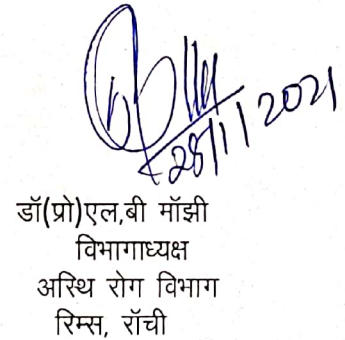 28/1/2021
डॉ(प्रो)एल,बी मॉझी
विभागाध्यक्ष
अस्थि रोग विभाग
रिम्स, रॉची